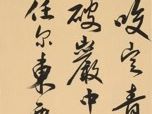 咬定青
破巖中
任尔東西